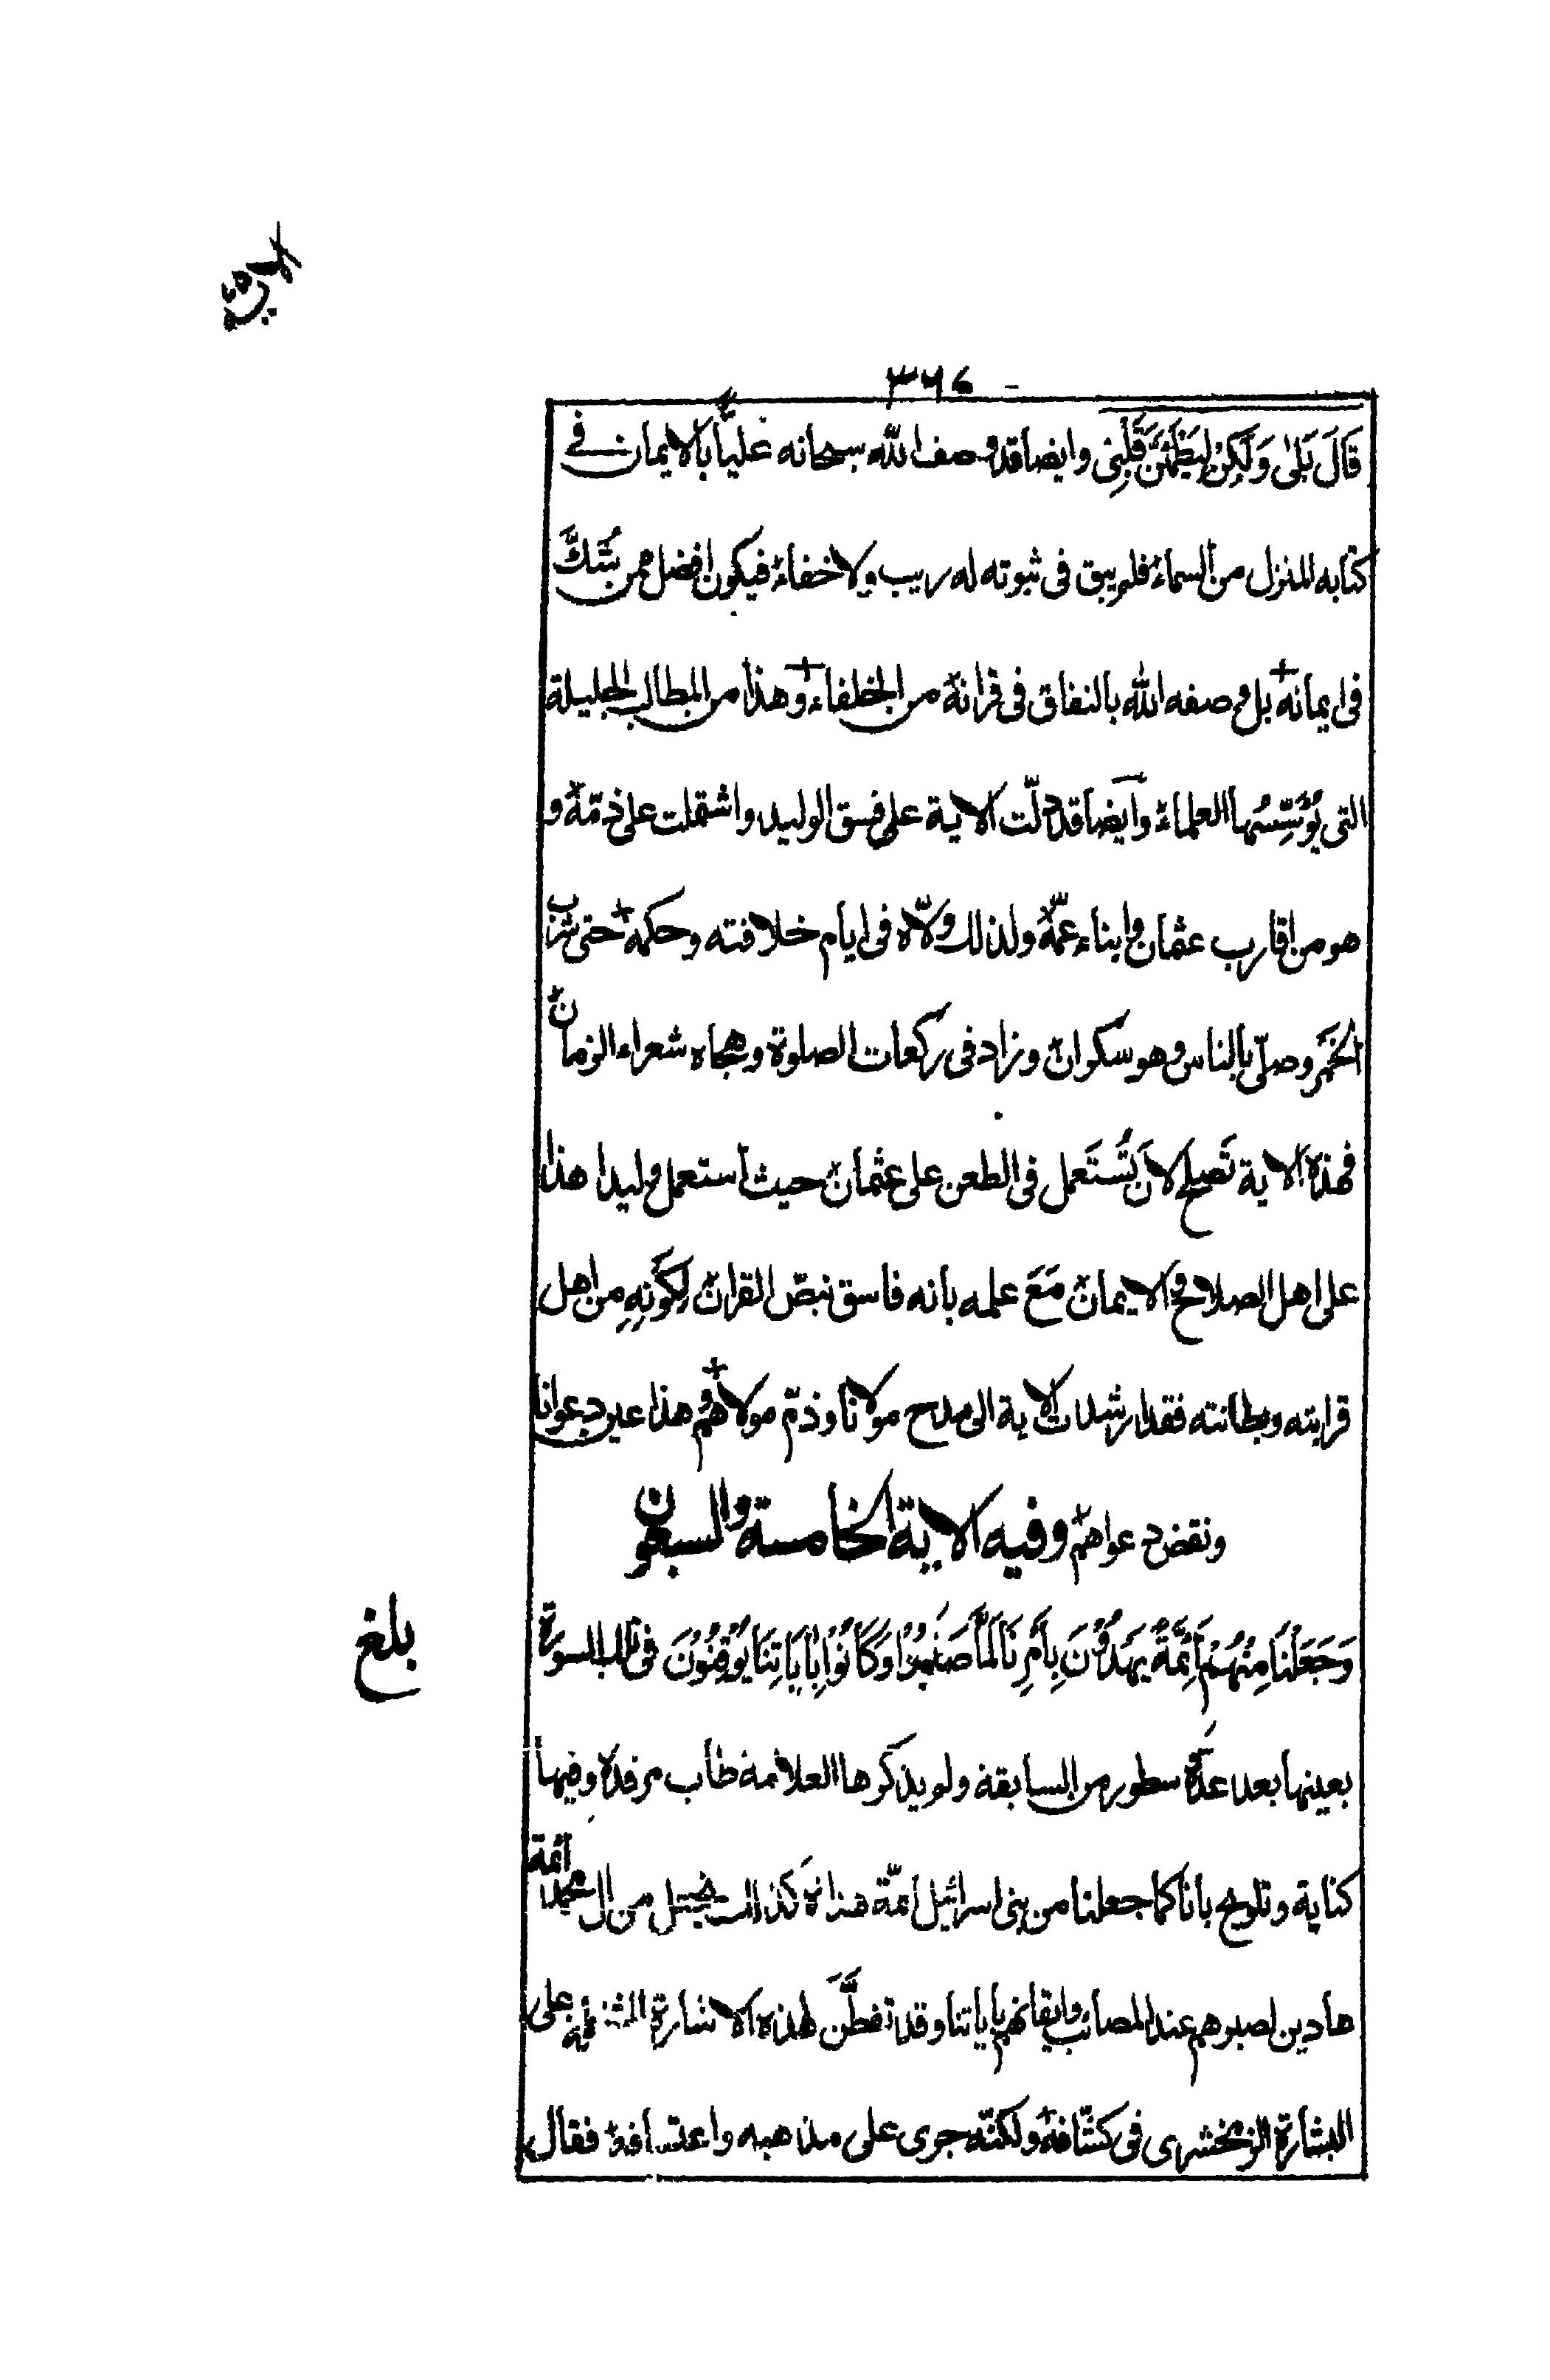 ٣٦٧
قَالَ بَلٰى وَلَكِنْ لِيَطْمَئِنَّ قَلْبِىْ وايضا قد وصف الله سبحانه عليّا بالايمان فے
كتابه المنزل من السماء فلم يبق فى ثبوته له ريب ولا خفاء فيكون افضل ممن شكّ
فى ايمانه بل وصفه الله بالنفاق فى قرانه من الخلفاء وهذا من المطالب الجليلة
التى يُؤسِّسُها العلماء وايضا قد دلّت الاية على فسق الوليد واشتملت على ذمّه و
هو من اقارب عثمان وابناء عمّه ولذلك ولّاه فى ايام خلافته وحكمه حتى شرب
الخمر وصلّى بالناس وهو سكران وزاد فى ركعات الصلوة وهجاه شعراء الزمان
فهذه الاية تصلح لان تُستَعمل فى الطعن على عثمان حيث استعمل وليدا هذا
على اهل الصلاح والايمان مَعَ علمه بانه فاسق بنصّ القران لِكَونِهِ من اهل
قرابته وبطانته فقد ارشدت الاية الى مدح مولانا وذمّ مولاهُم وهذا عين دعوانا
ونقض دعواهم وفيه الاية الخامسة والسبعون
وَجَعَلْنَا مِنْهُمْ اَئِمَّةً يَهْدُوْنَ بِاَمْرِنَا لَمَّا صَبَرُوْا وَكَانُوْا بِاٰيَاتِنَا يُوْقِنُوْنَ فى تلك السورة
بلغ
بعينها بعد عدّة سطور من السابقة ولم يذكرها العلامة طاب مرقده وفيها
كناية وتلويح بانا كما جعلنا من بنى اسرائيل ائمّة هداة كذلك نجعل من ال محمد ائمة
هادين لصبرهم عند المصائب وايقانهم باياتنا وقد تفطّن لهذه الاشارة على
البشارة الزمخشرى فى كشّافه ولكنّه جرى على مذهبه واعتسافه فقال